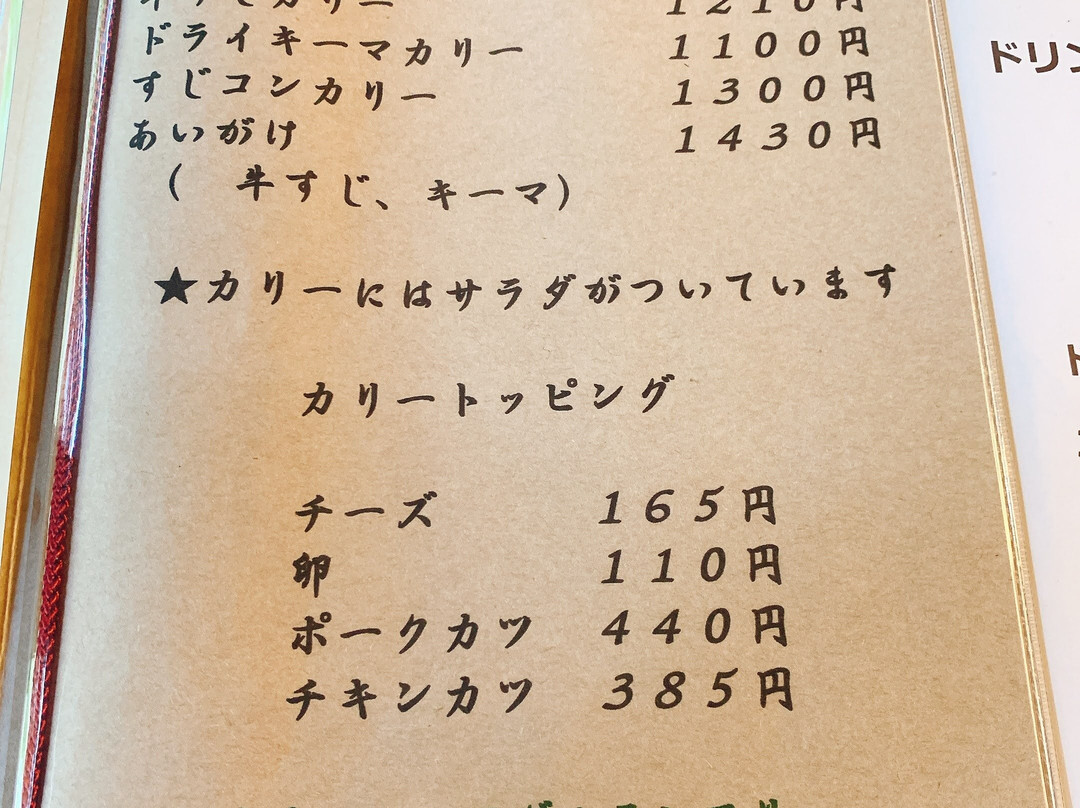 カリー 1210円
ドライキーマカリー 1100円
すじコンカリー 1300円
あいがけ 1430円
( 牛すじ、キーマ)
★カリーにはサラダがついています
カリートッピング
チーズ 165円
卵 110円
ポークカツ 440円
チキンカツ 385円
ドリン